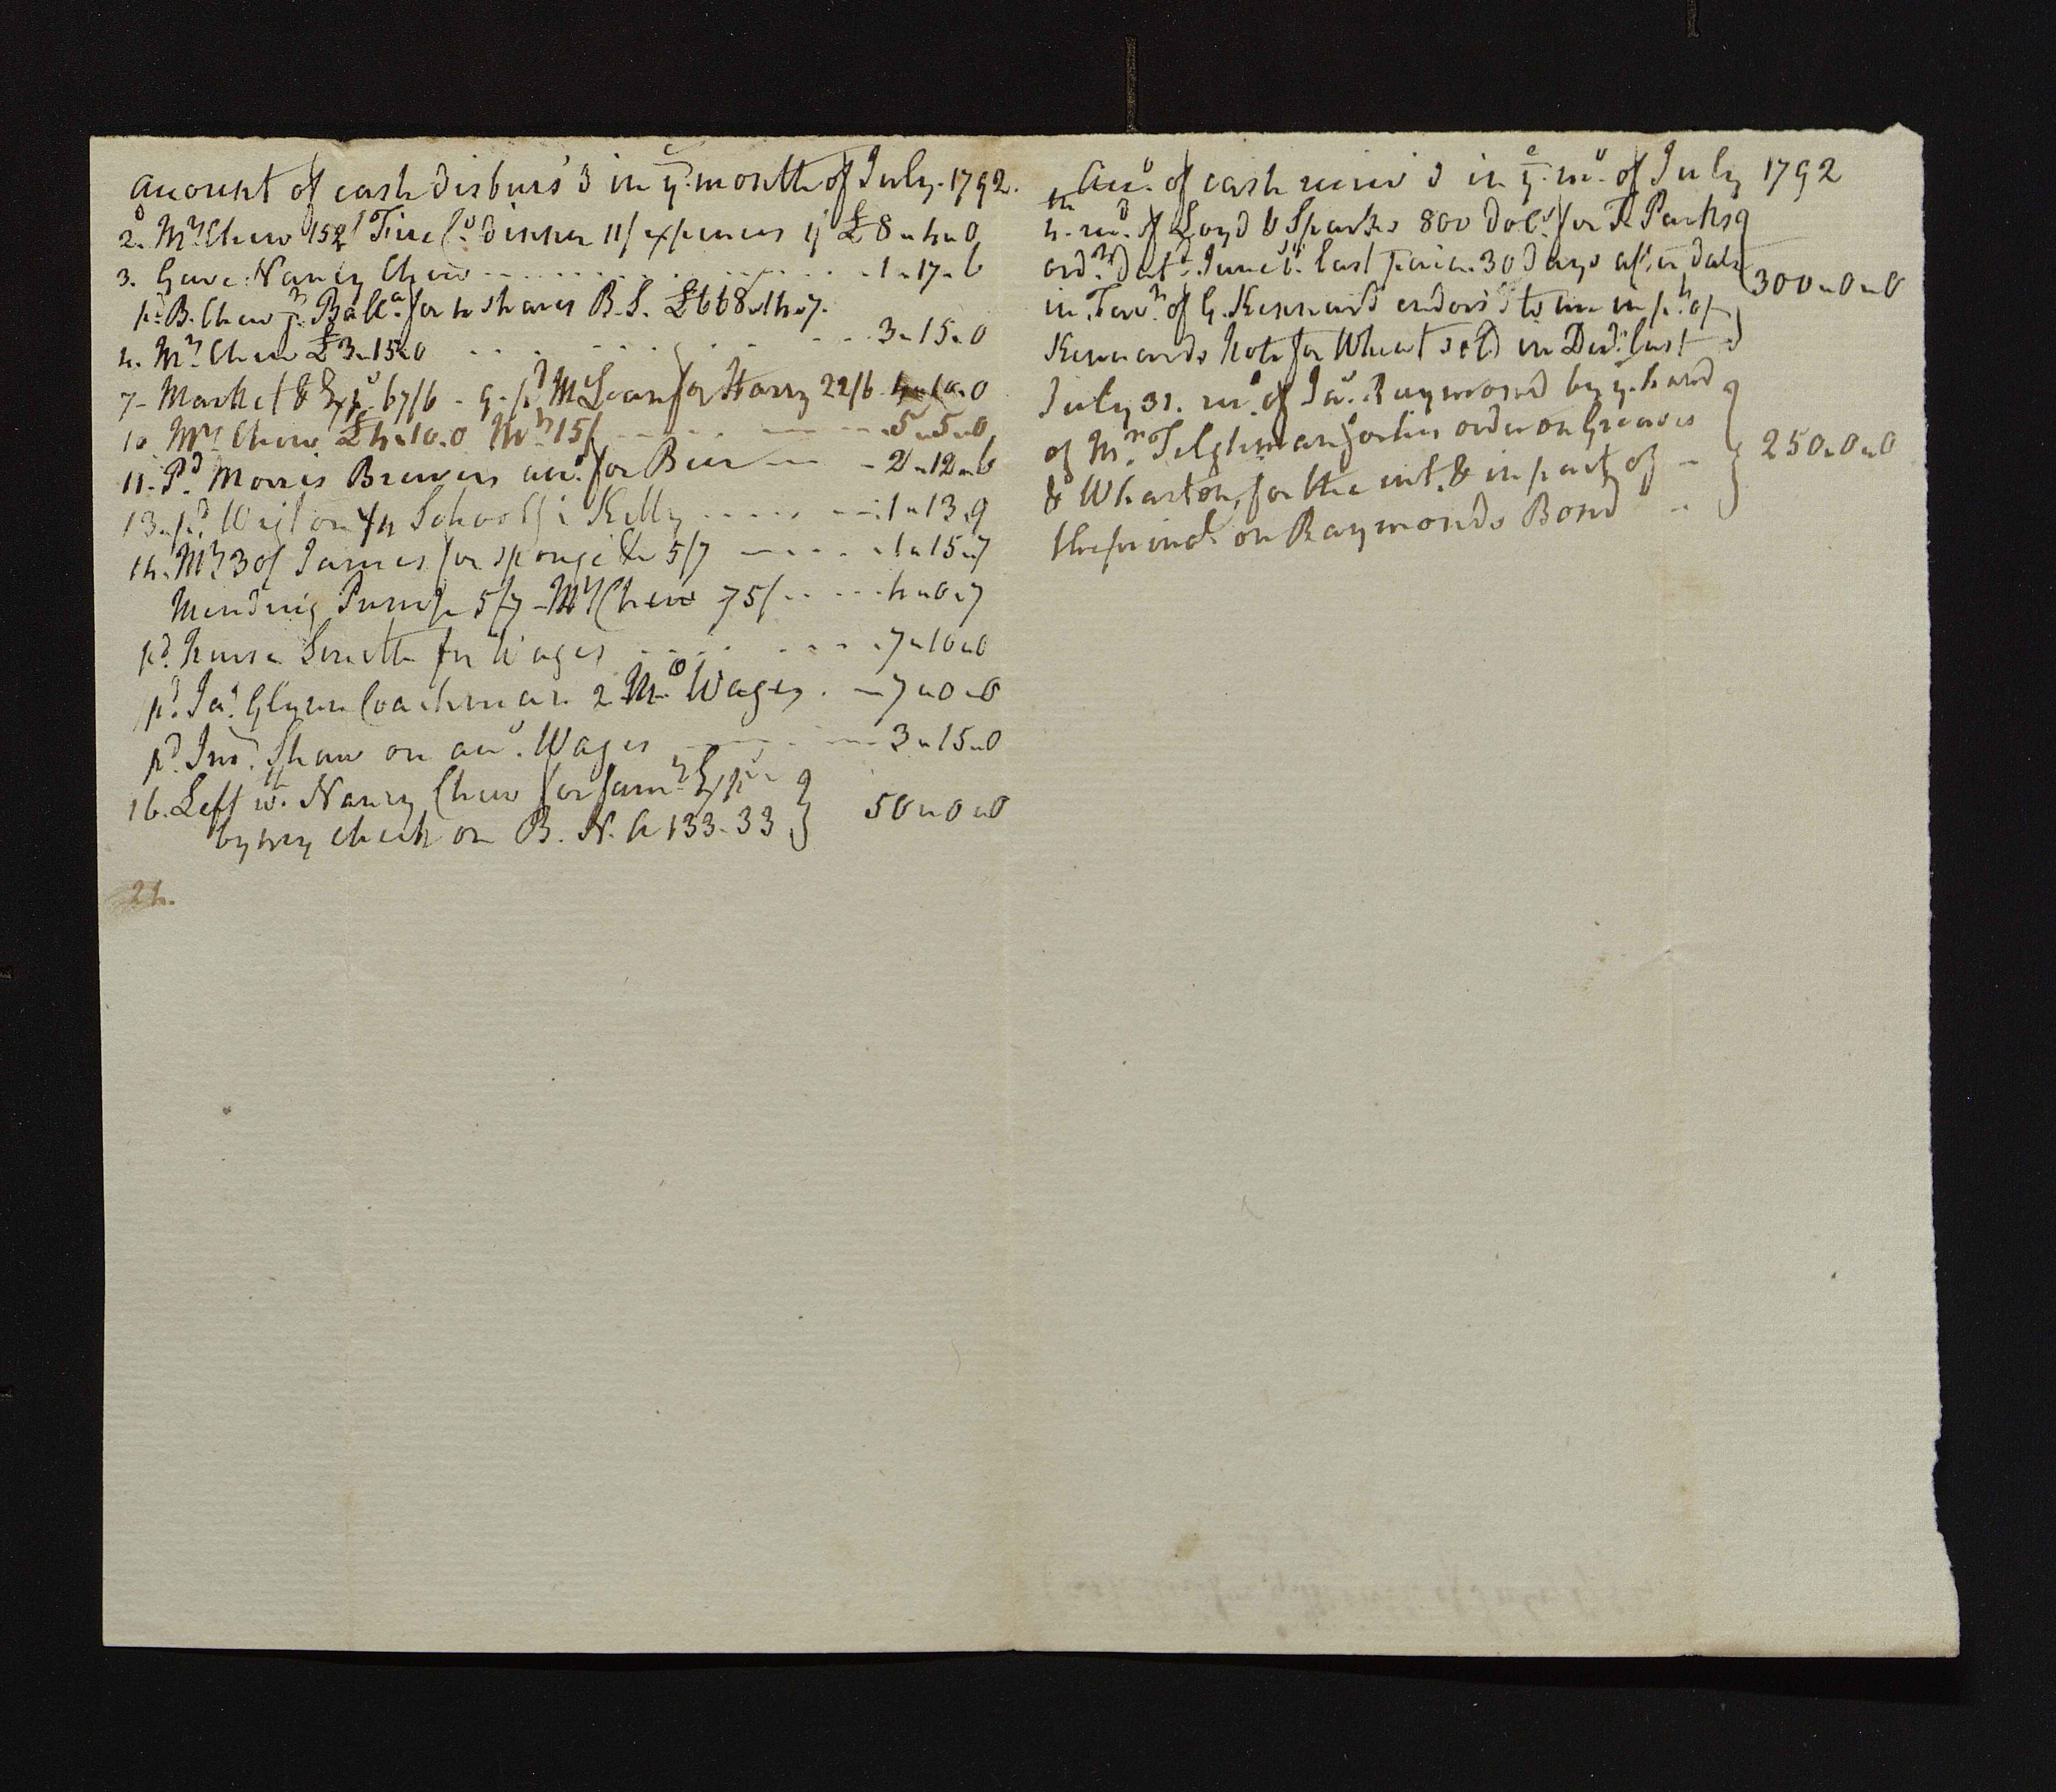 account of cash disburs'd in ye month of July 1792.
2. Mrs Chew 152/ Fire Co dinner 11/ expences 1/ £8 " 4 " 0
3. Gave Nancy Chew 1 " 17 " 6
pd B. Chew jr Balla for 4 shares B.S. £668 " 14 " 7
4. Mrs Chew £3 " 15 " 0 3 " 15 " 0
7 - Market & Exps 67/6 - 9 - pd McLean for Harry 22/6 4 " 10 " 0
10 Mrs Chew £4 " 10 " 0 15/ 5 " 5 " 0
11. Pd Morris Brewers acct for Beer 2 " 12 " 6
13. pd Wigton Schooling Kitty 1 " 13 " 9
14. James for sponge &c 5/7 1 " 15 " 7
Mending Pump 5/7 - Mrs Chew 75/ 4 " 0 " 7
pd nurse Smith for Wages 7 " 10 " 0
pd Jas Glynn Coachman 2 Mo Wages 7 " 0 " 0
pd Jno Shaw on acct Wages 3 " 15 " 0
16. Left wt Nancy Chew for famy Exps
by my check on B. N. A 133.33 } 50 " 0 " 0
24.
acct of cash receiv'd in ye mo of July 1792
4. recd of Loyd & Sparks 800 dols for Parks
ordr dated June last 30 days after date
in Favr of G. Kennard endors'd to me in pt of } 300 " 0 " 0
Kennards note for Wheat sold in Decr last
July 31. recd of Jas Raymond by ye hand
of Mr Tilghman for his order on Greaves
& Wharton, for the int. & in part of } 250 " 0 " 0
the princl on Raymonds Bond